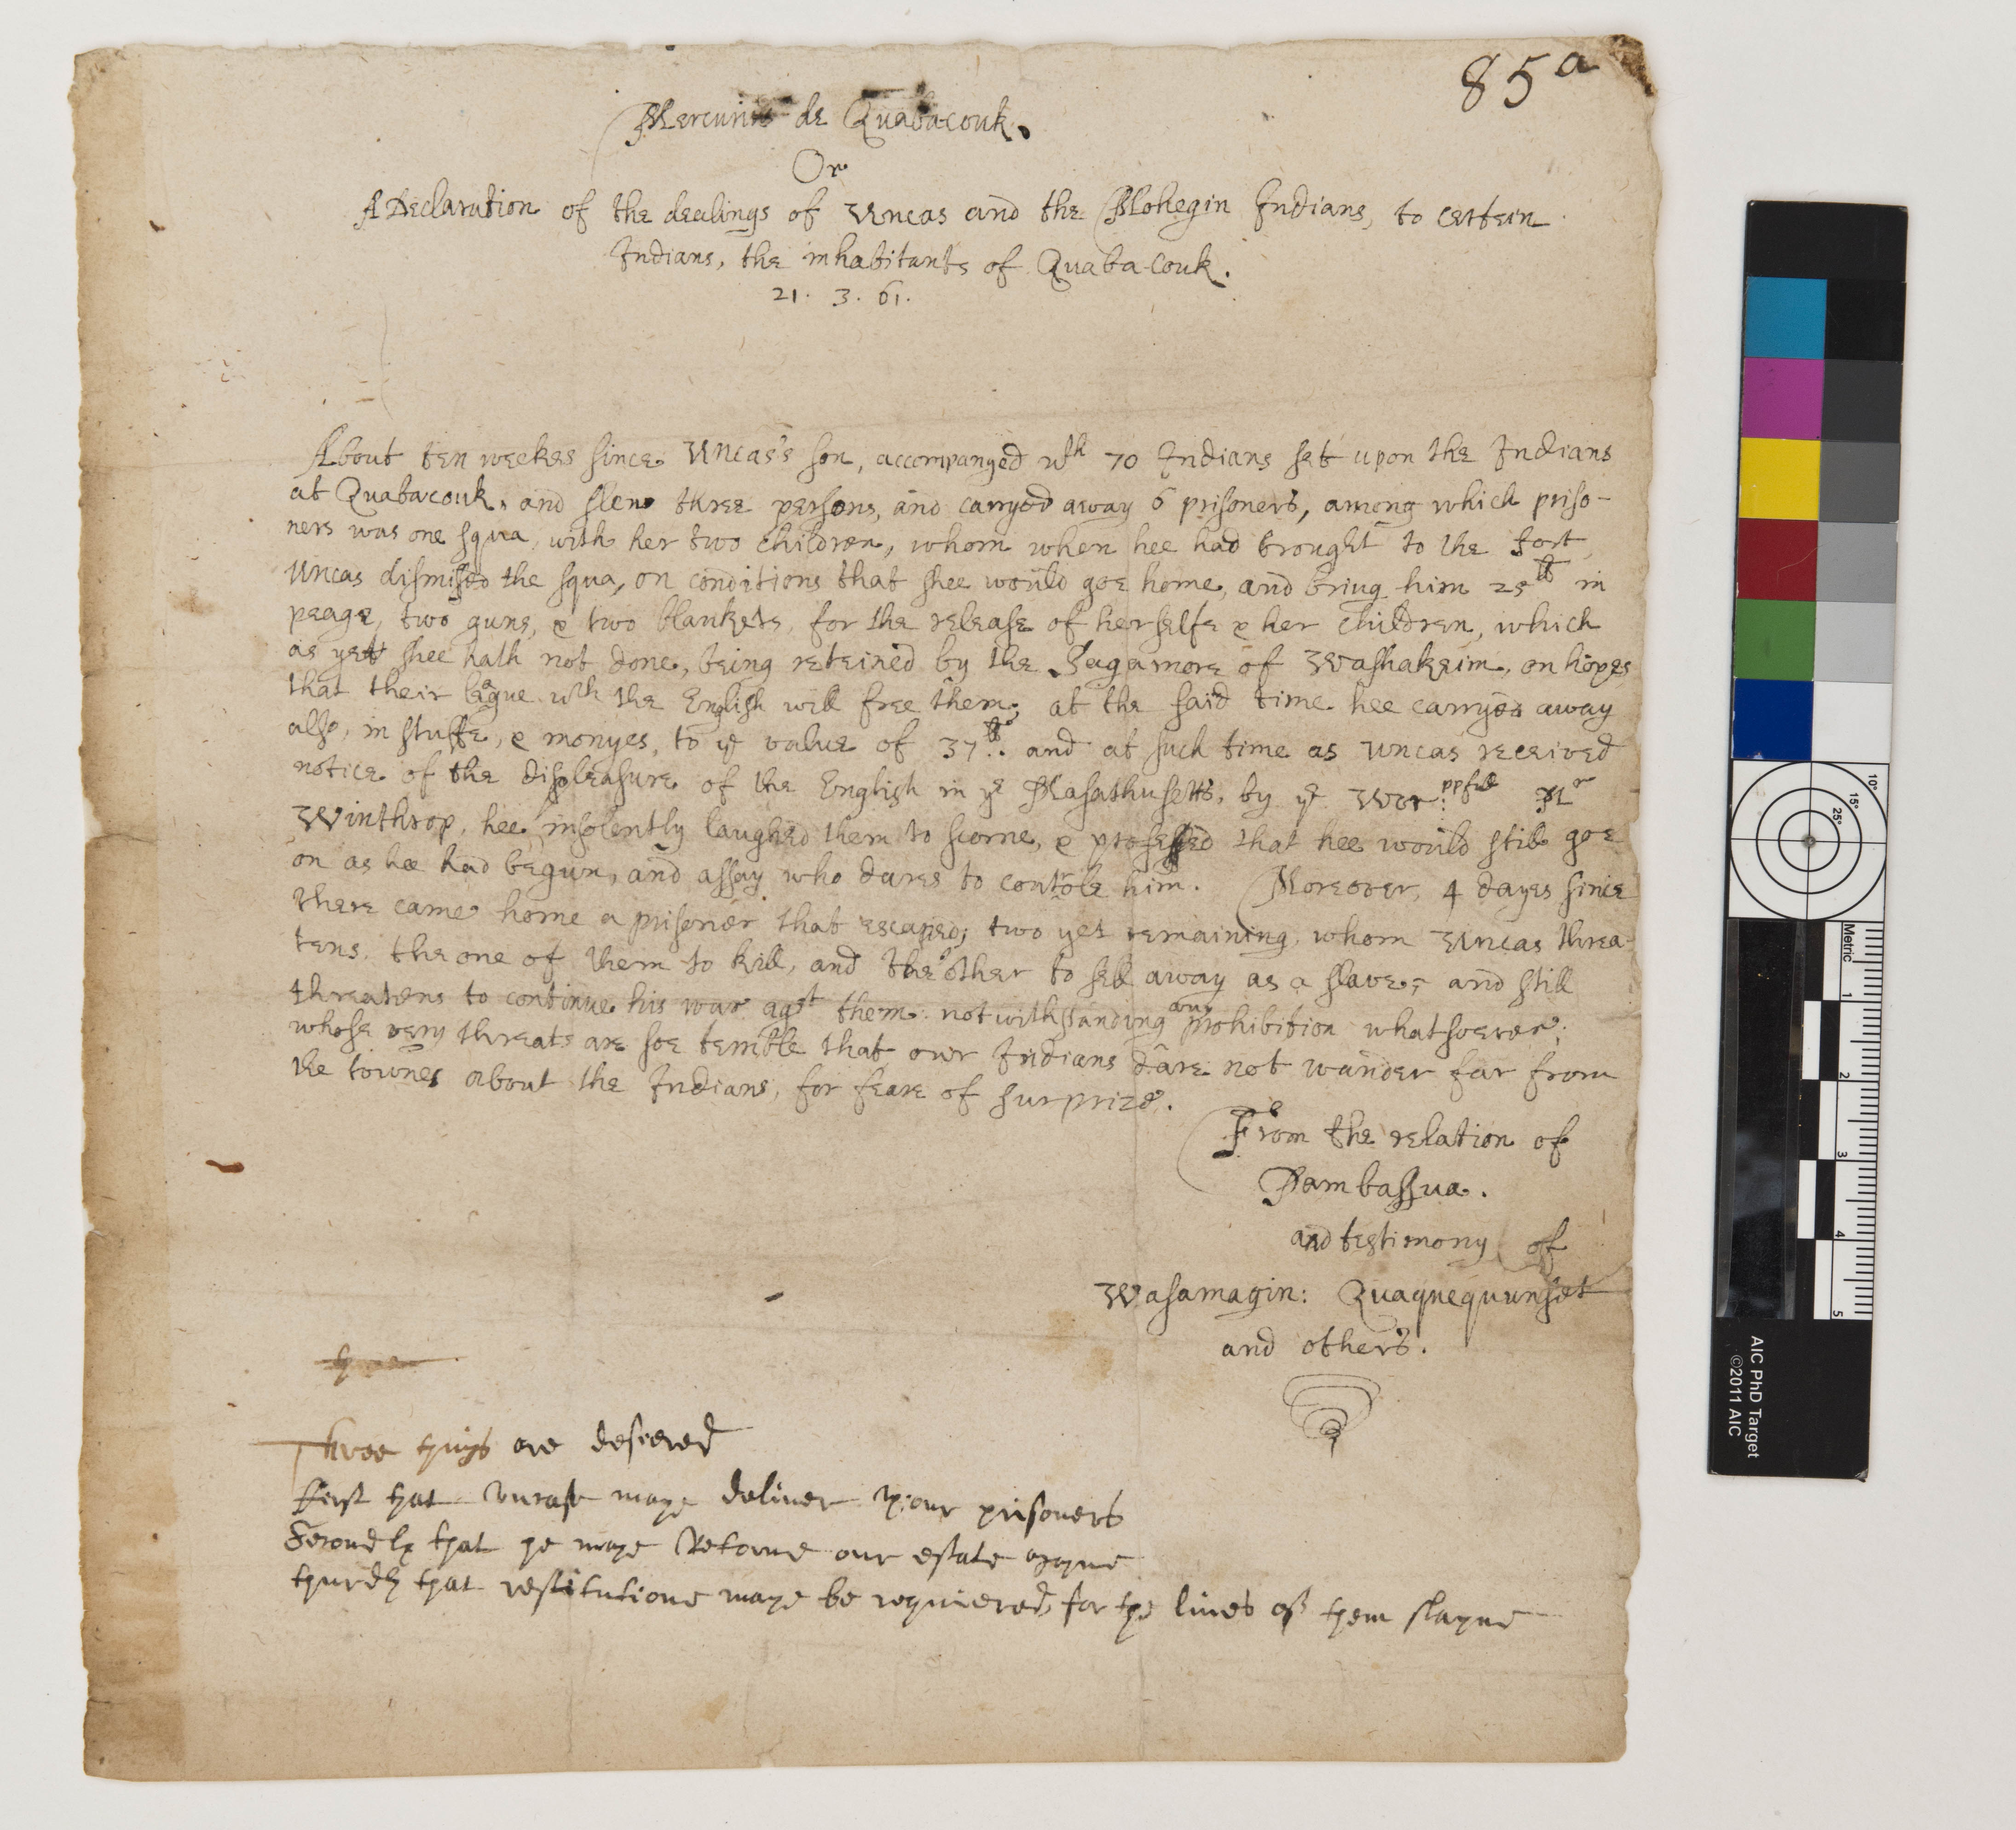 85a
Mercurius de Quabacouk.
Or
A Declaration of the dealings of Uncas and the Mohegin Indians, to certein
Indians, the inhabitants of Quaba-couk.
21. 3. 61.
About ten weekes since Uncas's son, accompanyed wth 70 Indians set upon the Indians
at Quabacouk, and slew three persons, and carryed away 6 prisoners, among which priso-
ners was one squa, with her two children, whom when hee had brought to the fort,
Uncas dismissed the squa, on conditions that shee would goe home, and bring him 25ll in
peage, two guns, & two blankets, for the release of herselfe & her children, which
as yet shee hath not done, being reteined by the Sagamore of Washakeim, on hopes
that their league wth the English will free them; at the said time hee carryed away
also, in stuffe, & monyes, to ye value of 37ll. and at such time as Uncas received
notice of the displeasure of the English in ye Masathusetts, by ye Wor:ppfull Mr
Winthrop, hee insolently laughed them to scorne, & professed that hee would still goe
on as hee had begun, and assay who dares to controle him. Moreover, 4 dayes since
there came home a prisoner that escaped; two yet remaining, whom Uncas threa-
tens, the one of them to kill, and the other to sell away as a slave, and still
threatens to continue his war agst them notwithstanding any prohibition whatsoever;
whose very threats are soe terrible that our Indians dare not wander far from
the townes about the Indians, for feare of surprize.
From the relation of
Pambassua.
and testimony of
Wasamagin: Quaquequunset
and others.
Three things are desiered
first that Uncass maye deliver up our prisoners
Secondly that he maye Retorne our estate agayne
thurdly that restitutione maye be requiered for the lives of them slayne